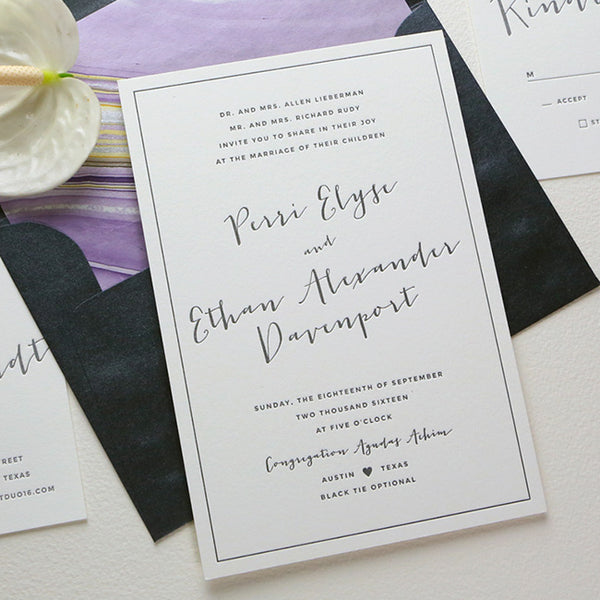 DR. AND MRS. ALLEN LIEBERMAN
MR. AND MRS. RICHARD RUDY
INVITE YOU TO SHARE IN THEIR JOY
AT THE MARRIAGE OF THEIR CHILDREN
Perri Elyse
and
Ethan Alexander
Davenport
SUNDAY, THE EIGHTEENTH OF SEPTEMBER
TWO THOUSAND SIXTEEN
AT FIVE O'CLOCK
Congregation Agudas Achim
AUSTIN ♥ TEXAS
BLACK TIE OPTIONAL
M
ACCEPT
TEXAS